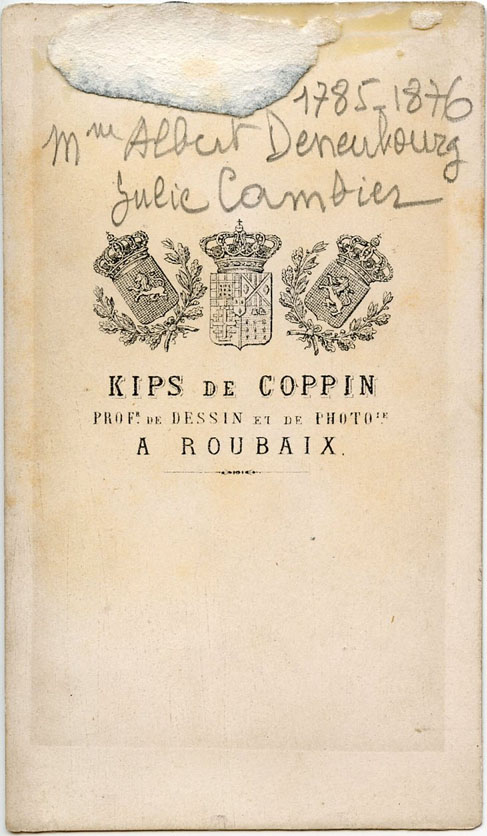 1785-1876
Mme Albert Deneubourg
Julie Cambier
KIPS DE COPPIN
PROFR. DE DESSIN ET DE PHOTOIE
A ROUBAIX.